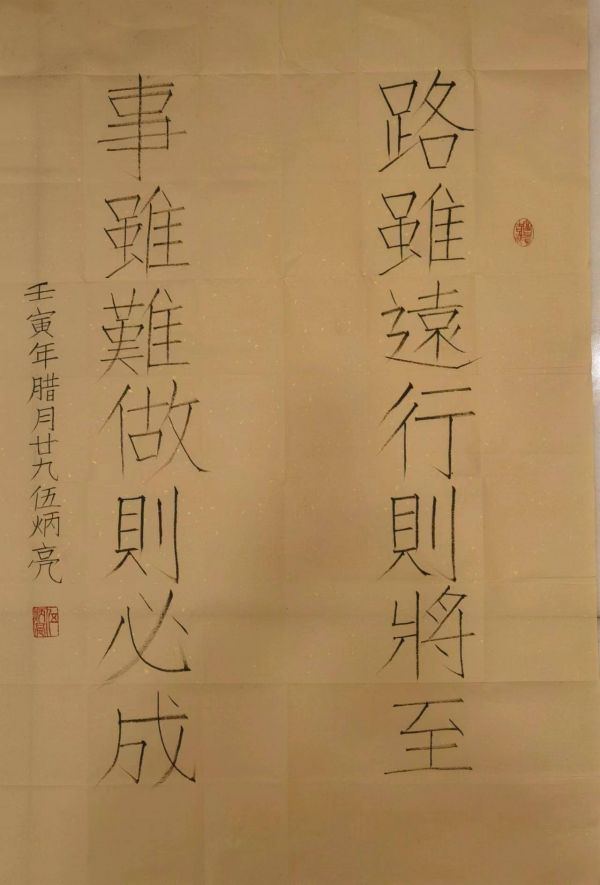 路雖遠行則將至
事雖難做則必成
壬寅年腊月廿九伍炳亮